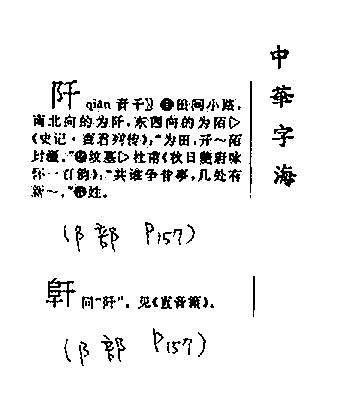 中華字海
阡 qiān 音千》❶田间小路，
南北向的为阡，东西向的为陌▷
《史记·商君列传》：“为田，开～陌
封疆。”❷坟墓▷杜甫《秋日夔府咏
怀一百韵》：“共谁争昔事，几处有
新～。”❸姓。
(阝部 P157)
同“阡”。见《直音篇》。
(阝部 P157)